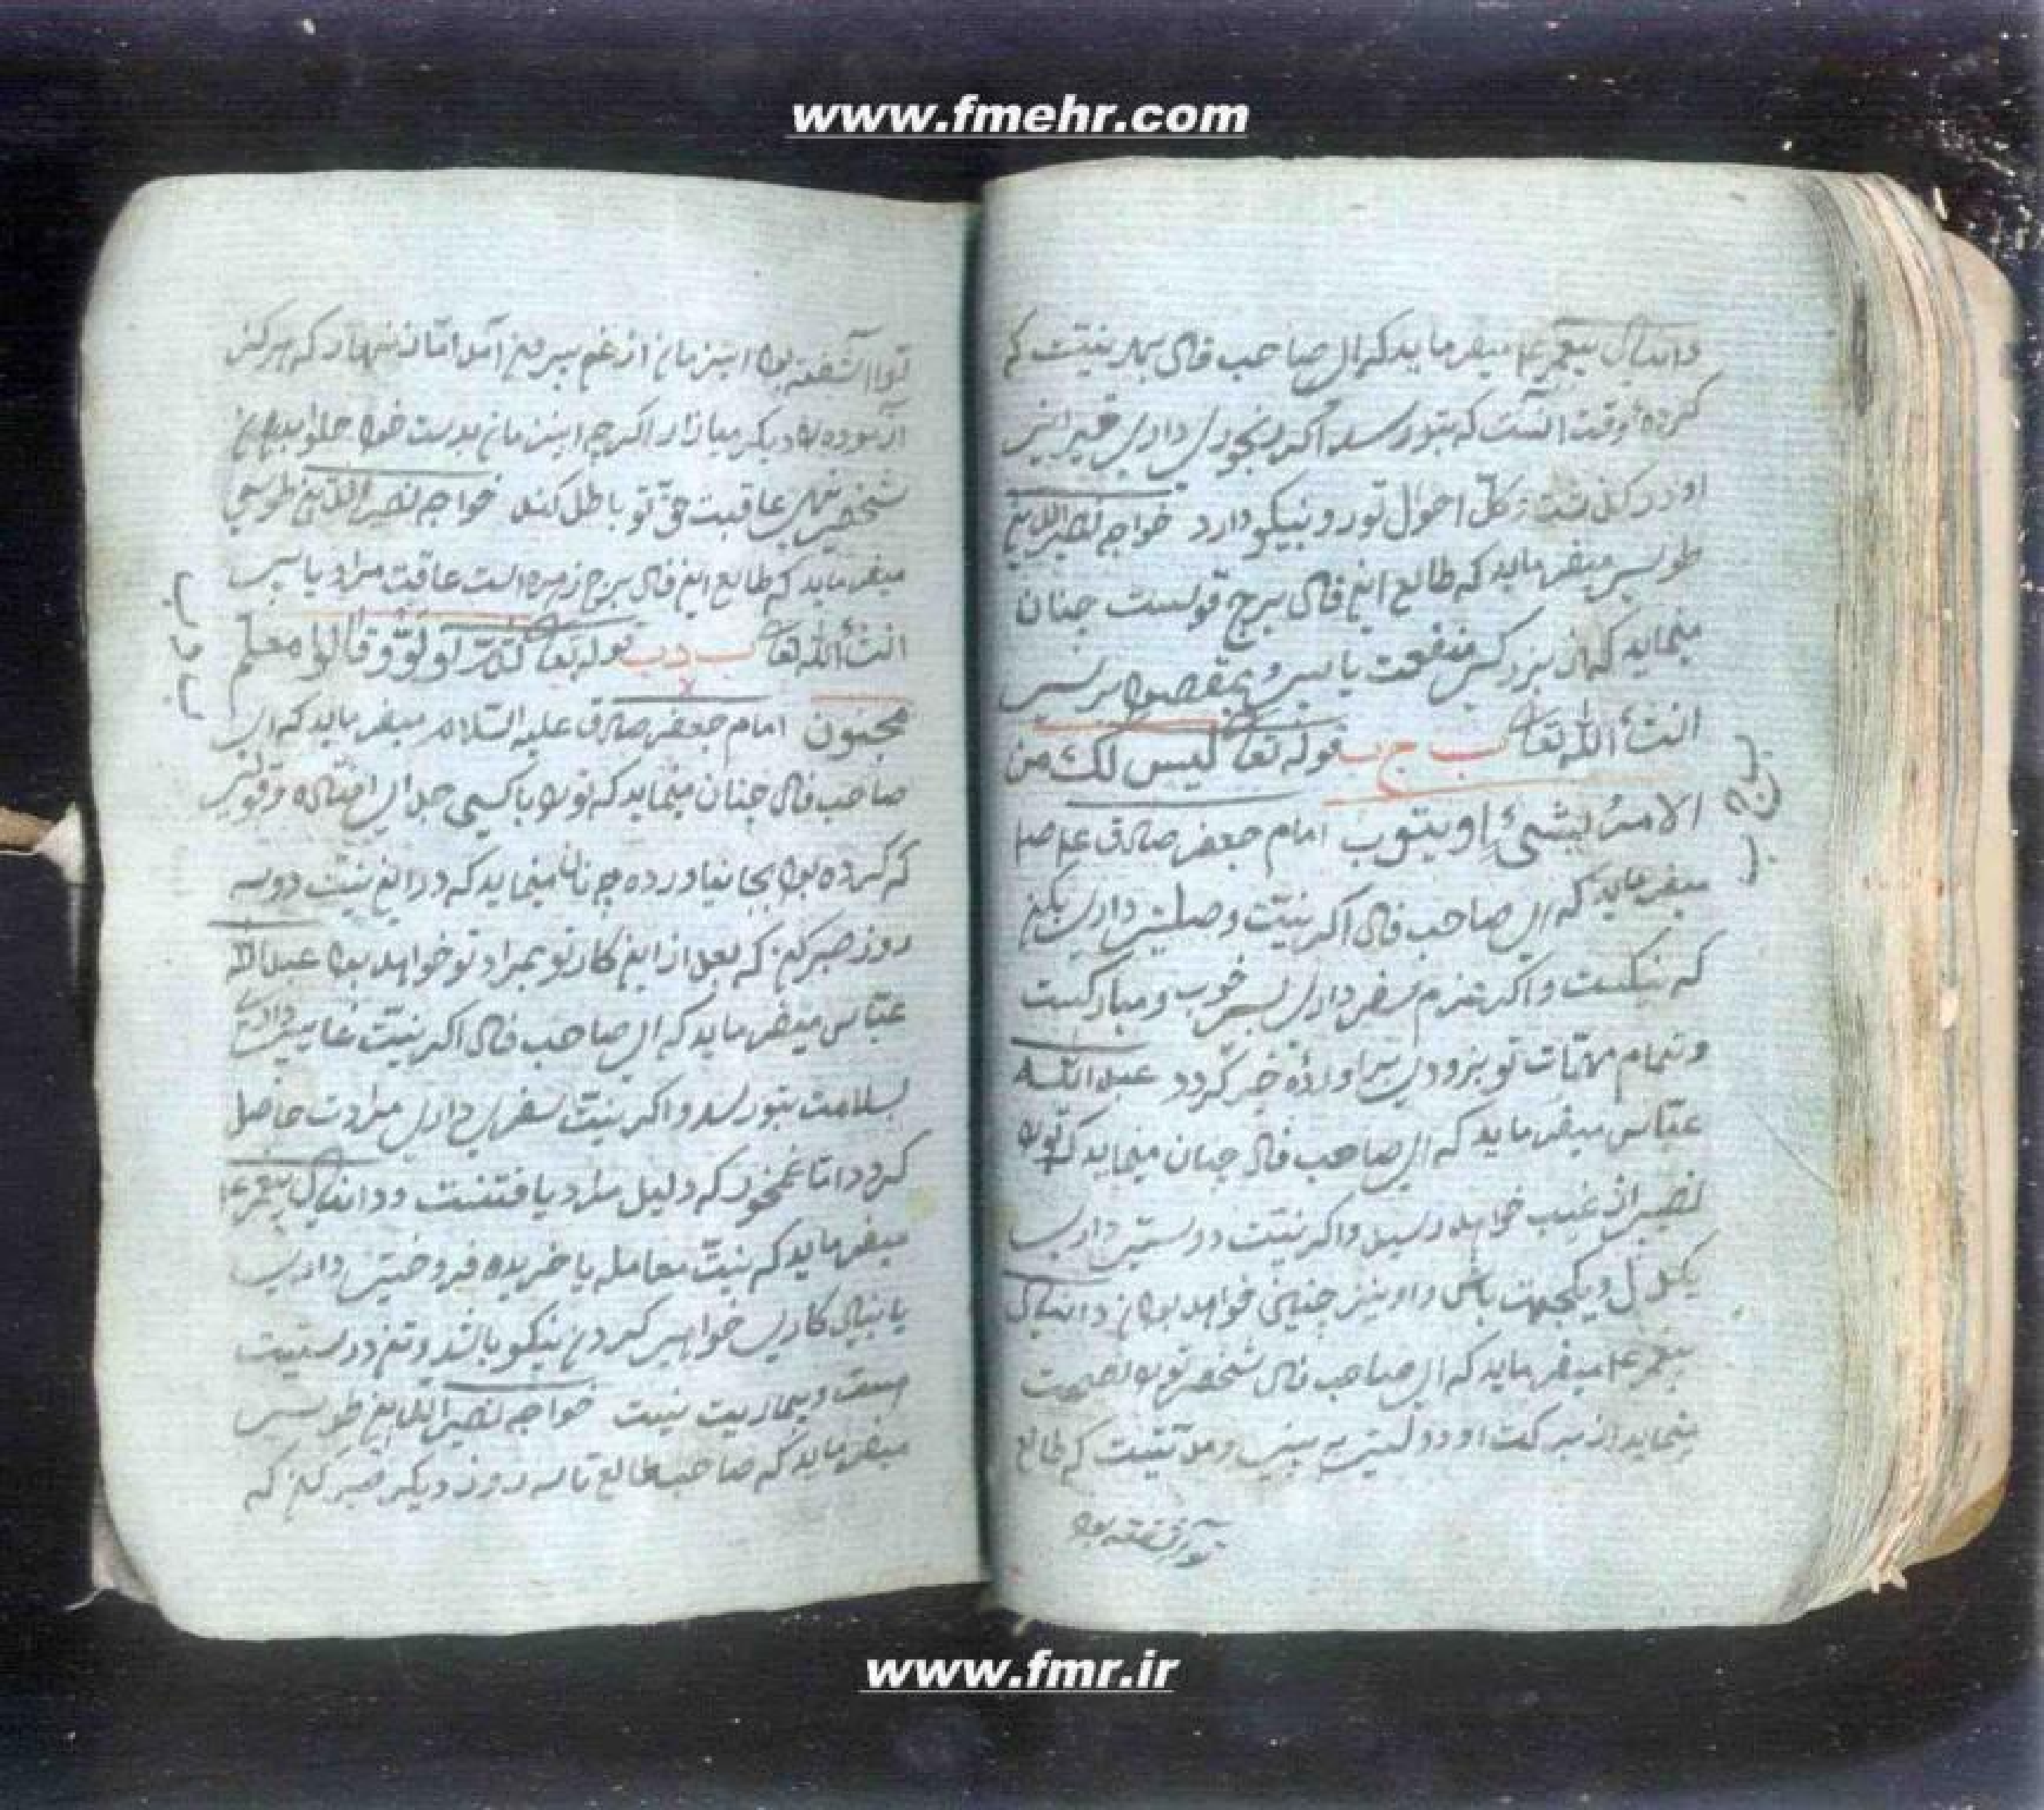 www.fmehr.com
دانیال پیغمبر ع میفرماید که ای صاحب فال بهر نیت که
کرده وقت آنست که بتو رسد اگر رنجوری داری غیر ازین
احوال تو رو به نیکو دارد خواجه نصیرالدین
طوسی میفرماید که طالع این فال برج قوست چنان
مینماید که از بزرگی منفعت یابی و بمقصود برسی
انشاءالله تعالی ب ج ب قوله تعالی لیس لک من
الامر لشیء او یتوب امام جعفر صادق
میفرماید که ای صاحب فال اگر نیت وصلتی داری بکن
که نیکست و اگر عزم سفر داری بسی خوب و مبارکست
و تمام مهمات تو بزودی برآورده خیر گردد عبدالله
عباس میفرماید که ای صاحب فال چنان مینماید که تورا
نصیبی از غیب خواهد رسید و اگر نیت دوستی داری
یکدل و یکجهت باش و او نیز چنین خواهد بودن دانیال
پیغمبر ع میفرماید که ای صاحب فال شخصی تو را نصیحت
مینماید از برکت او دولتی به بینی و مدتیست که طالع
تو آشفته بود
تو آشفته بود این زمان از غم بیرون آمد اما زینهار که هرکز
آزموده را دیگر میازار اگرچه این زمان بدست خود
شخصی عاقبت حق تو باطل کند خواجه نصیرالدین طوسی
میفرماید که طالع این فال برج زهره است عاقبت مراد یابی
انشاءالله تعالی ب د ب قوله تعالی ثم تولوا و قالوا معلم
مجنون امام جعفر صادق علیه السلام میفرماید که ای
صاحب فال چنان مینماید که تورا با کسی جدال افتاده و قولی
که کرده بود بجا نیاورده چنان مینماید که در این نیت دو سه
روز صبر کن که بعد از این کار تو بمراد تو خواهد بود عبدالله
عباس میفرماید که ای صاحب فال اگر نیت غایبی داری
بسلامت بتو رسد و اگر نیت سفری داری مرادت حاصل
گردد اما غم مخور که دلیل مراد یافتنست و دانیال پیغمبر ع
میفرماید که نیت معامله یا خریده فروختی داری
یا بنیاد کاری خواهی کردن نیکو باشد و تن درستیت
هست و بیماریت نیست خواجه نصیرالدین طوسی
میفرماید که صاحب طالع تا سه روز دیگر صبر کن که
www.fmr.ir